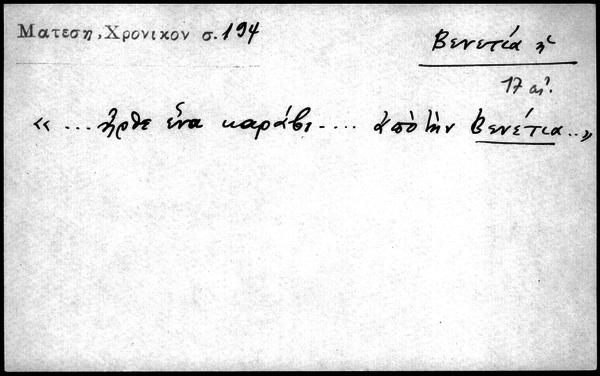 Ματεση, Χρονικον σ. 194
Βενετία ἡ
17 αἰ.
« ... ἦρθε ἕνα καράβι .... ἀπὸ τὴν Βενέτια .. »